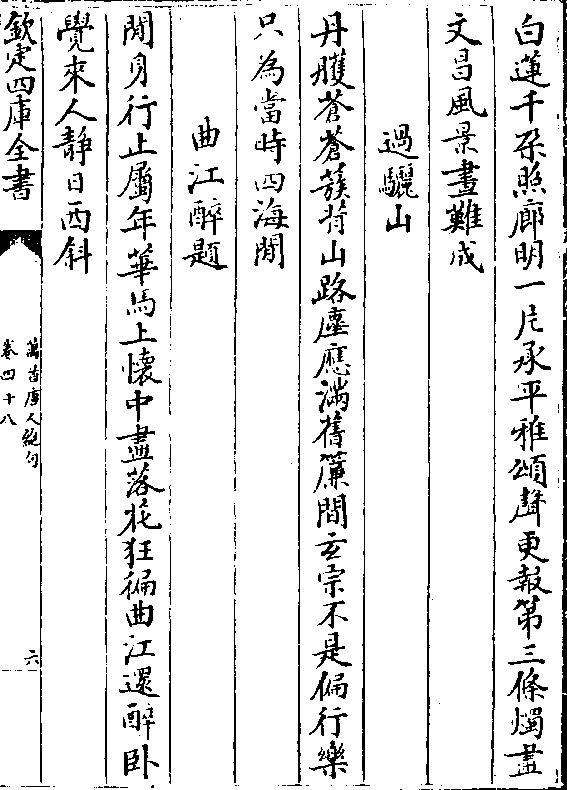 白蓮千朶照廊明一片承平雅頌聲更報第三條燭盡
文昌風景畫難成
過驪山
丹雘蒼蒼蔟背山路塵應滿舊簾間玄宗不是偏行樂
只為當時四海閒
曲江醉題
閒身行止屬年華馬上懷中盡落花狂徧曲江還醉卧
覺來人靜日西斜
欽定四庫全書
萬首唐人絶句
卷四十八
六